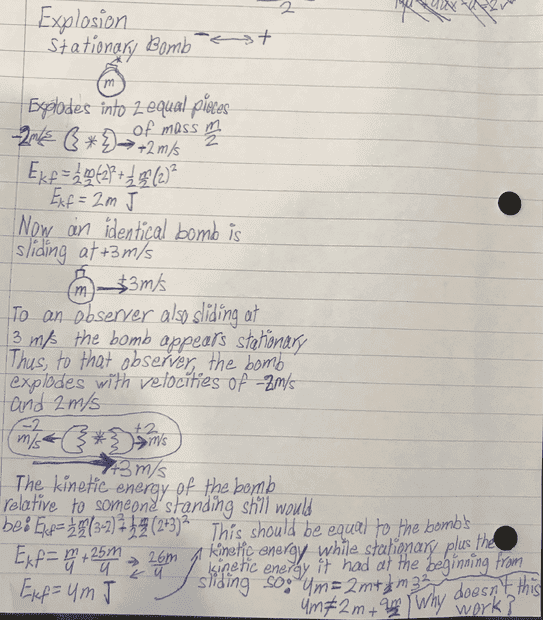 2
Explosion
Stationary Bomb - ←→ +
m
Explodes into 2 equal pieces
of mass m/2
-2m/s ← { * } → +2m/s
Ekf = ½ m/2 (-2)² + ½ m/2 (2)²
Ekf = 2m J
Now an identical bomb is
sliding at +3m/s
m → +3m/s
To an observer also sliding at
3 m/s the bomb appears stationary
Thus, to that observer, the bomb
explodes with velocities of -2m/s
and 2m/s
-2 m/s ← { * } → +2 m/s
→ +3m/s
The kinetic energy of the bomb
relative to someone standing still would
be: Ekf = ½ m/2 (3-2)² + ½ m/2 (2+3)²
Ekf = m/4 + 25m/4 → 26m/4
Ekf = 4m J
This should be equal to the bomb's
kinetic energy while stationary plus the
kinetic energy it had at the beginning from
sliding so: 4m = 2m + ½ m 3²
4m ≠ 2m + 9m/2
Why doesn't this
work?